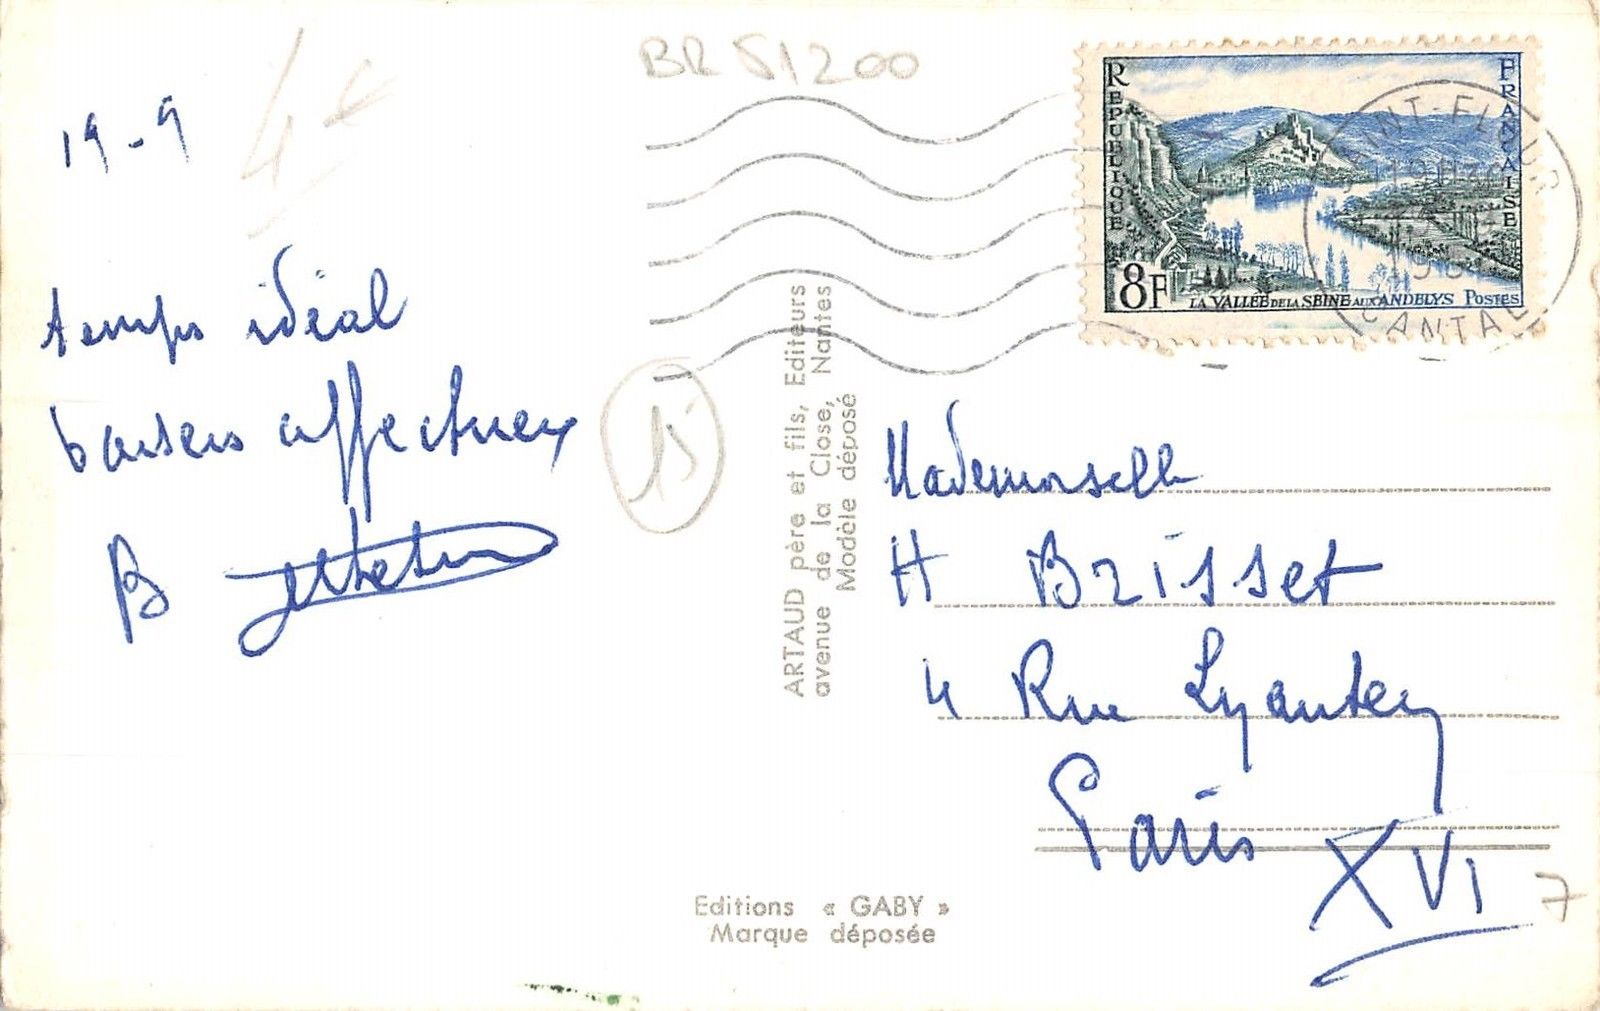 BR 51200
19-9
temps idéal
baisers affectueux
B
15
ARTAUD père et fils, Editeurs
avenue de la Close, Nantes
Modèle déposé
Editions « GABY »
Marque déposée
REPUBLIQUE
FRANÇAISE
8F
LA VALLÉE DE LA SEINE AUX ANDELYS POSTES
SAINT-FLOUR
CANTAL
Mademoiselle
H Brisset
4 Rue Lyautey
Paris XVI
7